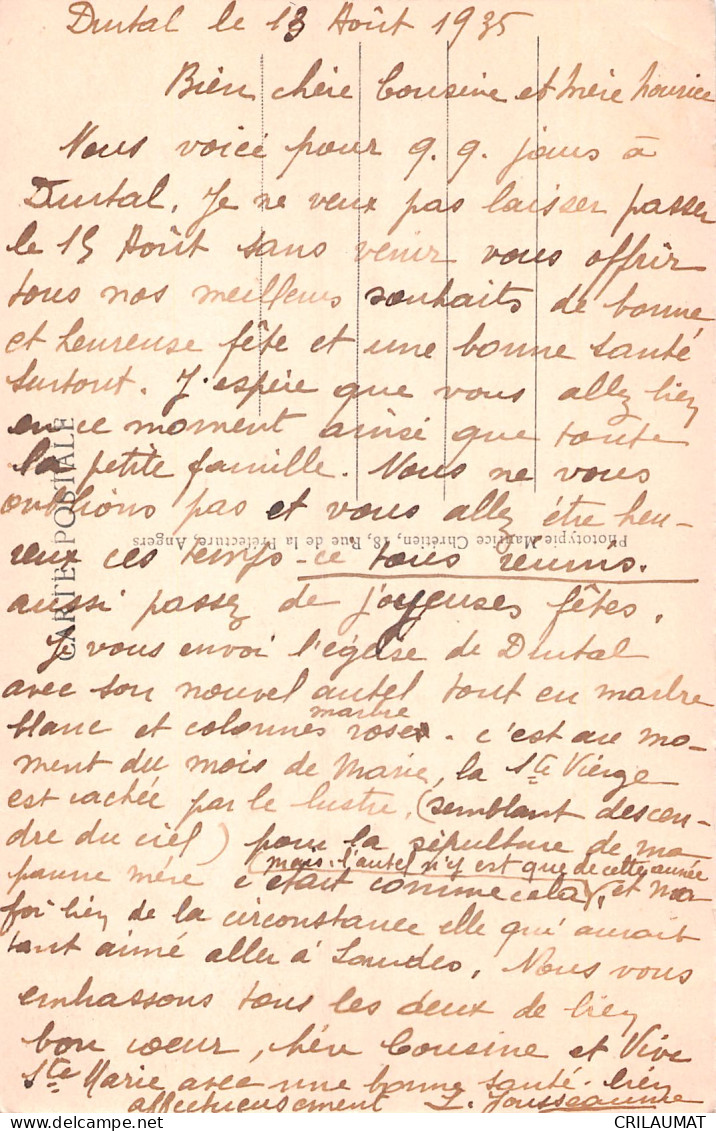 Durtal le 13 Août 1935
Bien chère Cousine et mère
Nous voici pour q. q. jours à
Durtal. Je ne veux pas laisser passer
le 15 Août sans venir vous offrir
tous nos meilleurs souhaits de bonne
et heureuse fête et une bonne santé
surtout. J'espère que vous allez bien
en ce moment ainsi que toute
la petite famille. Nous ne vous
oublions pas et vous allez être heu-
reux ces temps-ce tous réunis.
aussi passez de joyeuses fêtes.
Je vous envoi l'église de Durtal
avec son nouvel autel tout en marbre
blanc et colonnes marbre roses. c'est au mo-
ment du mois de Marie, la Ste Vierge
est cachée par le lustre, (semblant descen-
dre du ciel) pour la sépulture de ma
pauvre mère c'était comme cela, et ma
(mais l'autel n'y est que de cette année)
foi bien de la circonstance elle qui aurait
tant aimé aller à Lourdes. Nous vous
embrassons tous les deux de bien
bon cœur, chère Cousine et Vive
Ste Marie avec une bonne santé. bien
affectueusement L. Jousseaume
CARTE POSTALE
Phototypie Maurice Chrétien, 18, Rue de la Préfecture, Angers
CRILAUMAT